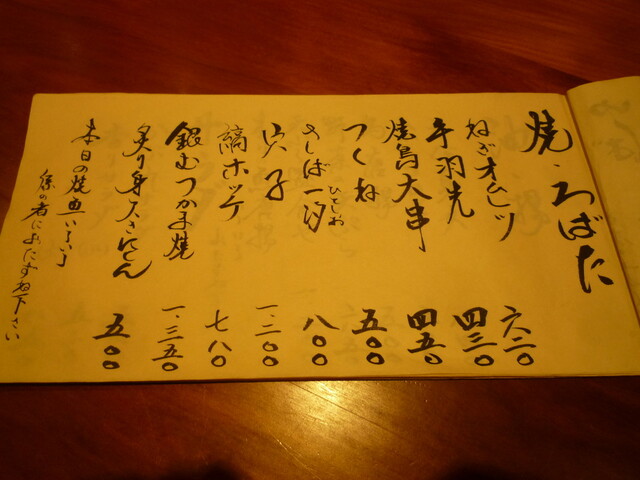 焼・ろばた
ねぎオムレツ 六二〇
手羽先 四三〇
焼鳥大串 四五〇
つくね 五〇〇
めしば一汐 ひとしお 八〇〇
穴子 一、二〇〇
縞ホッケ 七八〇
銀むつかま焼 一、三五〇
炙り身欠きにしん 五〇〇
本日の焼魚
係の者におたずね下さい